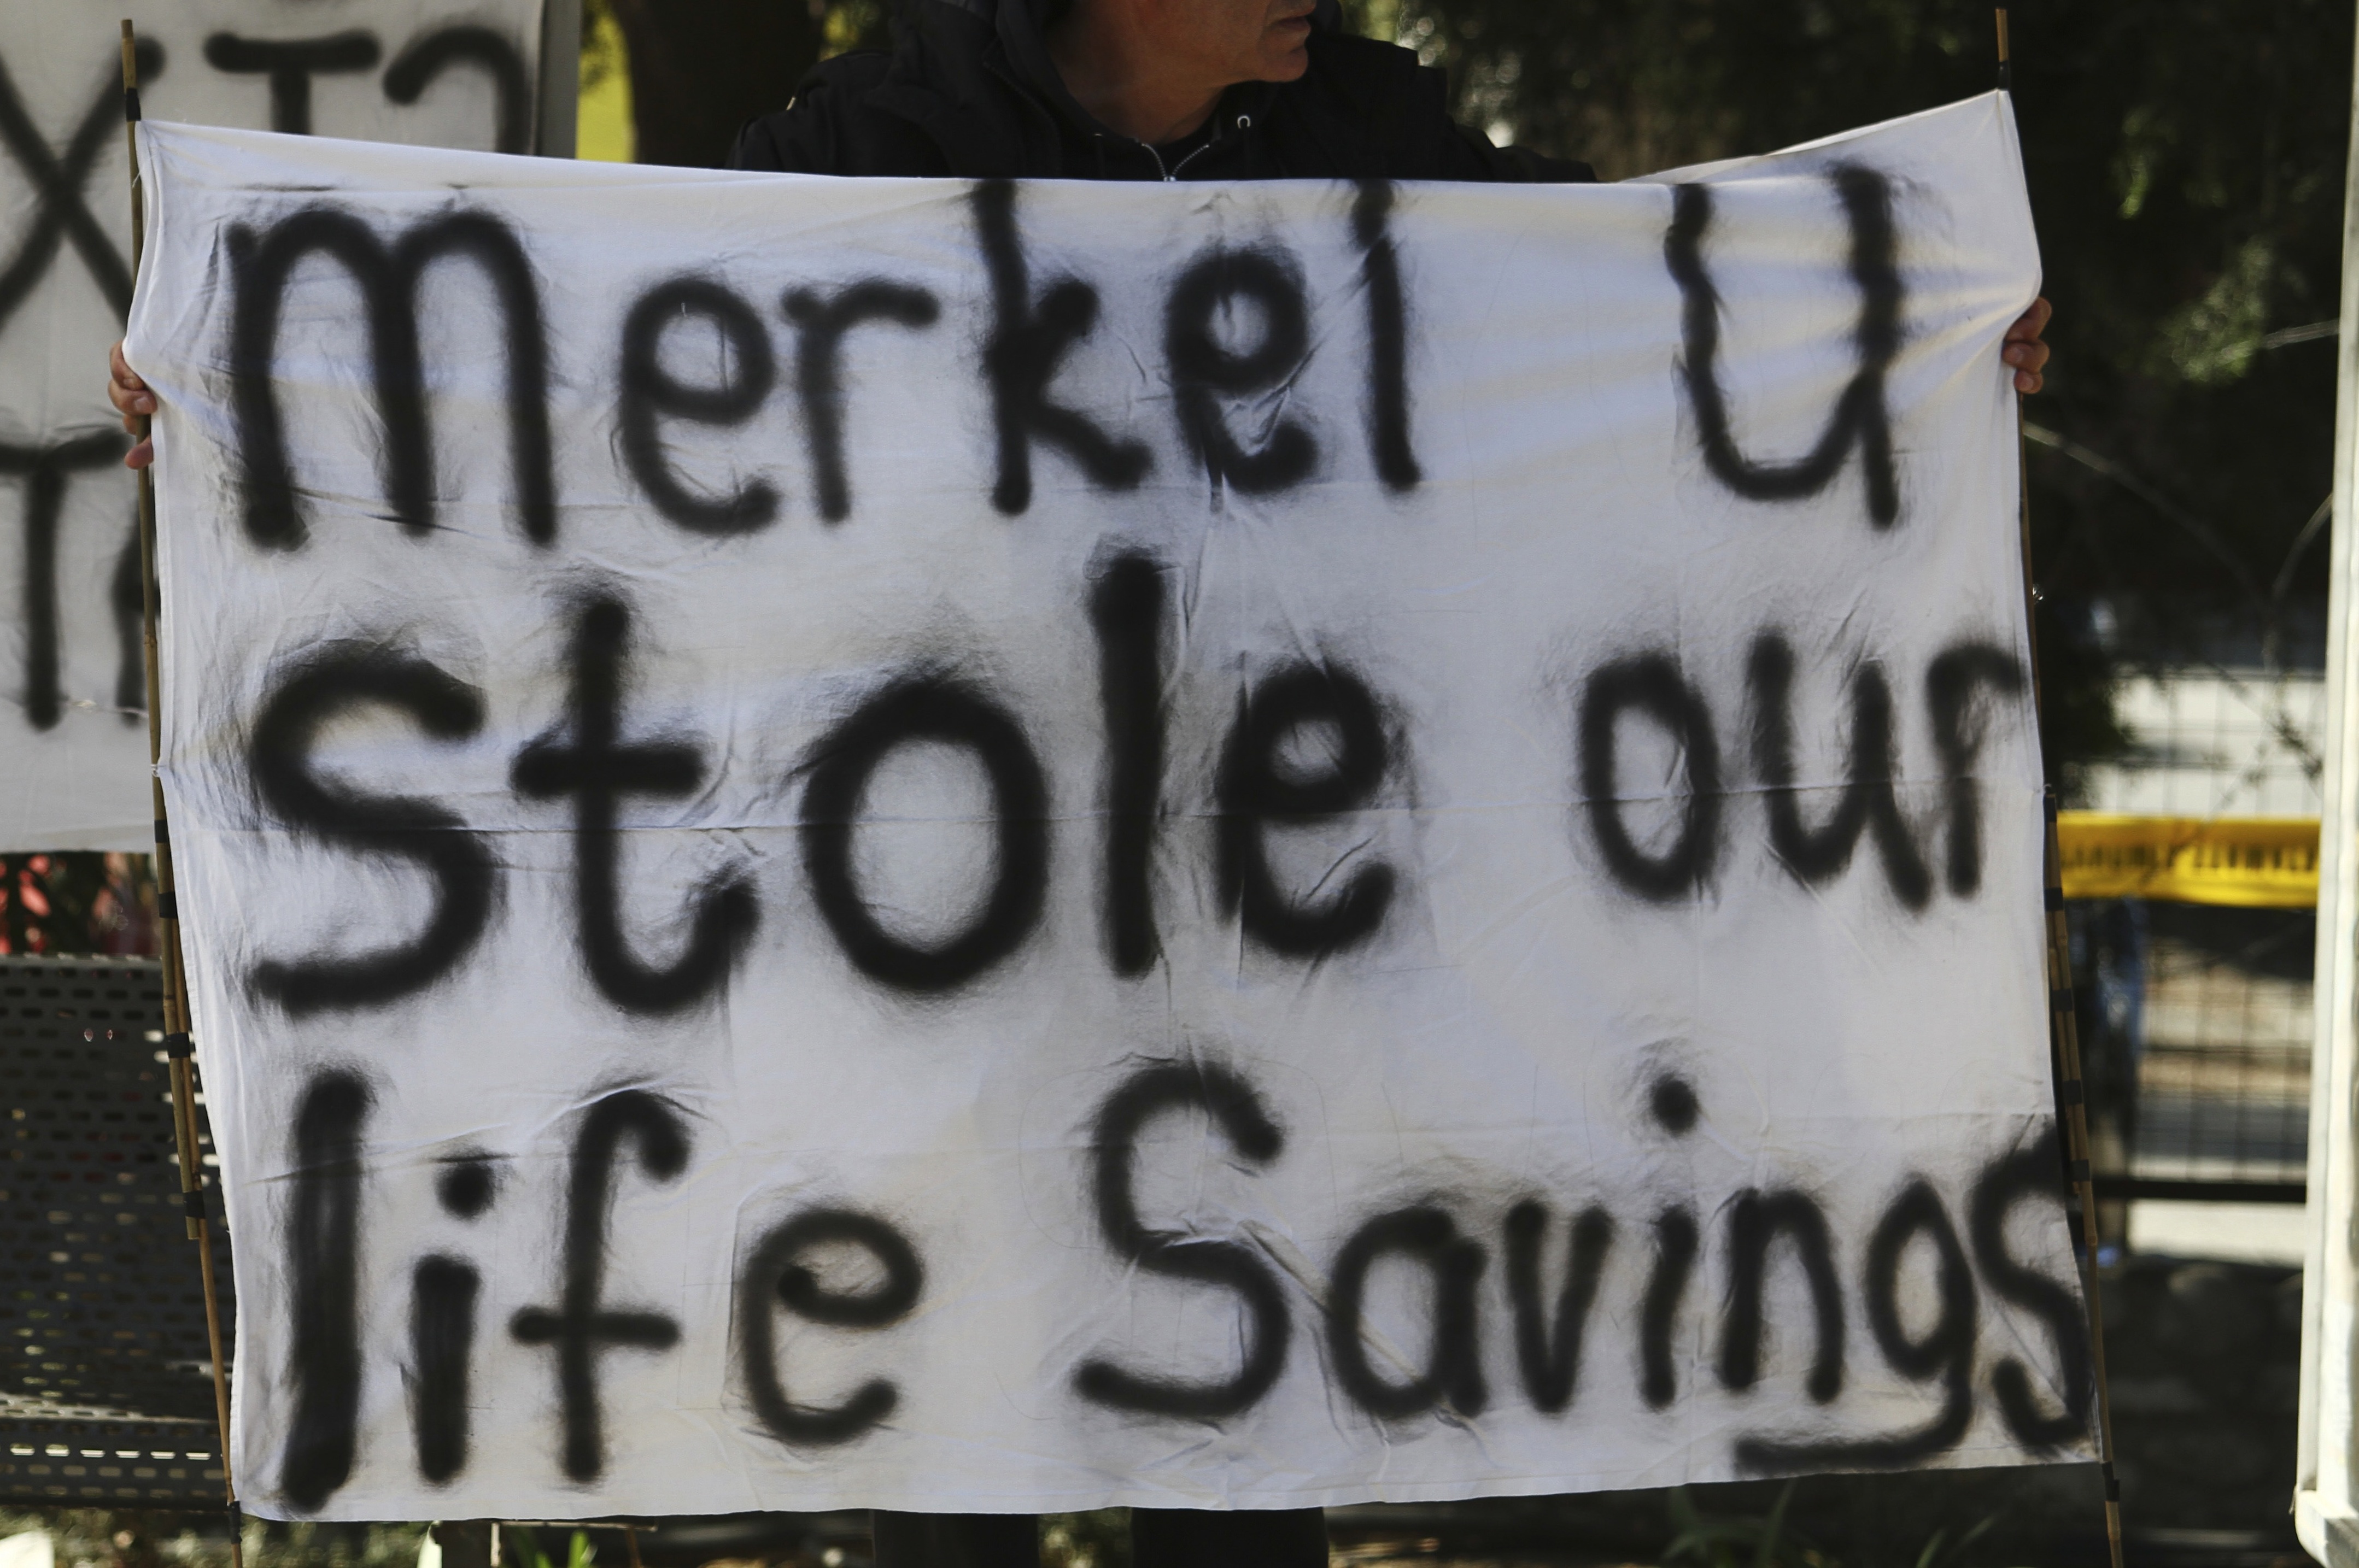 merkel u
stole our
life Savings